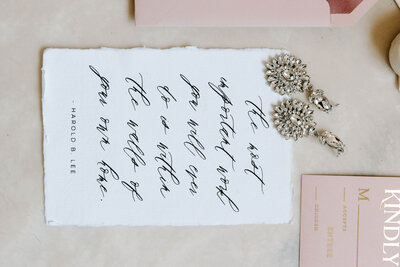 the most
important work
you will ever
do is within
the walls of
your own home.
- HAROLD B. LEE
KINDLY
M
ACCEPTS
ENTREE
CHICKEN